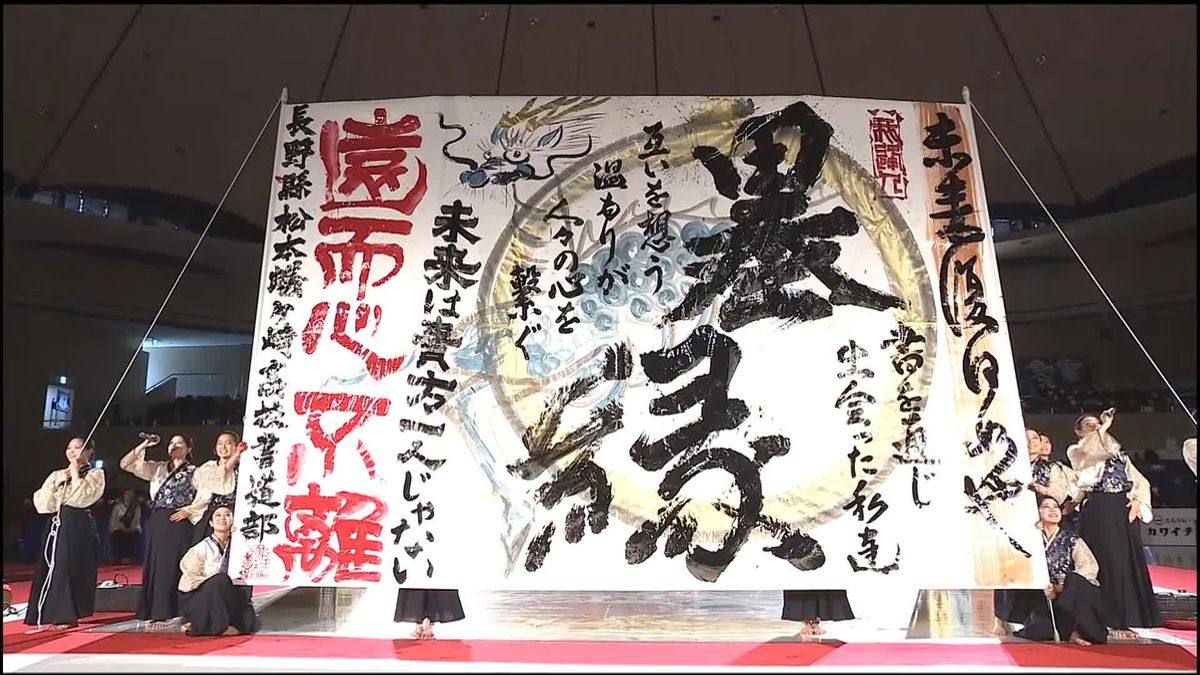 書を通じ
出会った私達
墨縁
互いを想う
温もりが
人々の心を
繋ぐ
未来は貴方一人じゃない
遠而心不離
長野縣松本蟻ヶ崎高校書道部
カワイチ